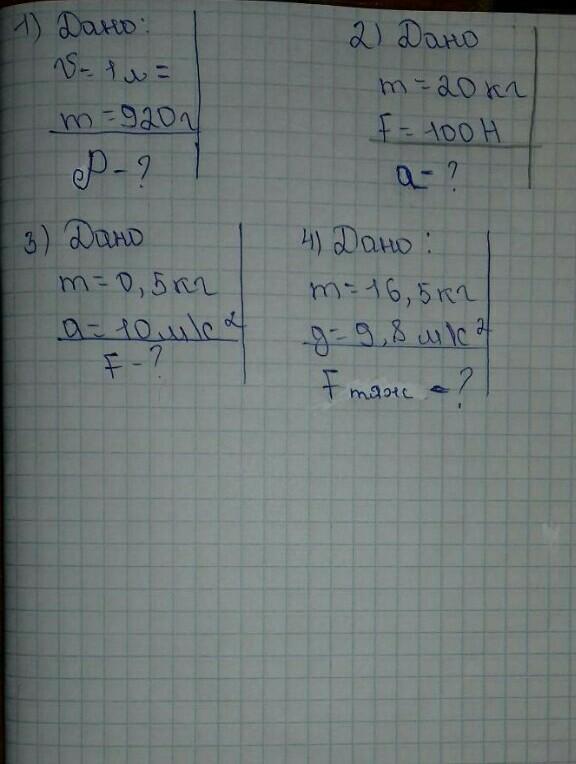 1) Дано:
V = 1 л =
m = 920 г
ρ - ?
2) Дано
m = 20 кг
F = 100 Н
a - ?
3) Дано
m = 0,5 кг
a = 10 м/с²
F - ?
4) Дано:
m = 16,5 кг
g = 9,8 м/с²
F тяж - ?